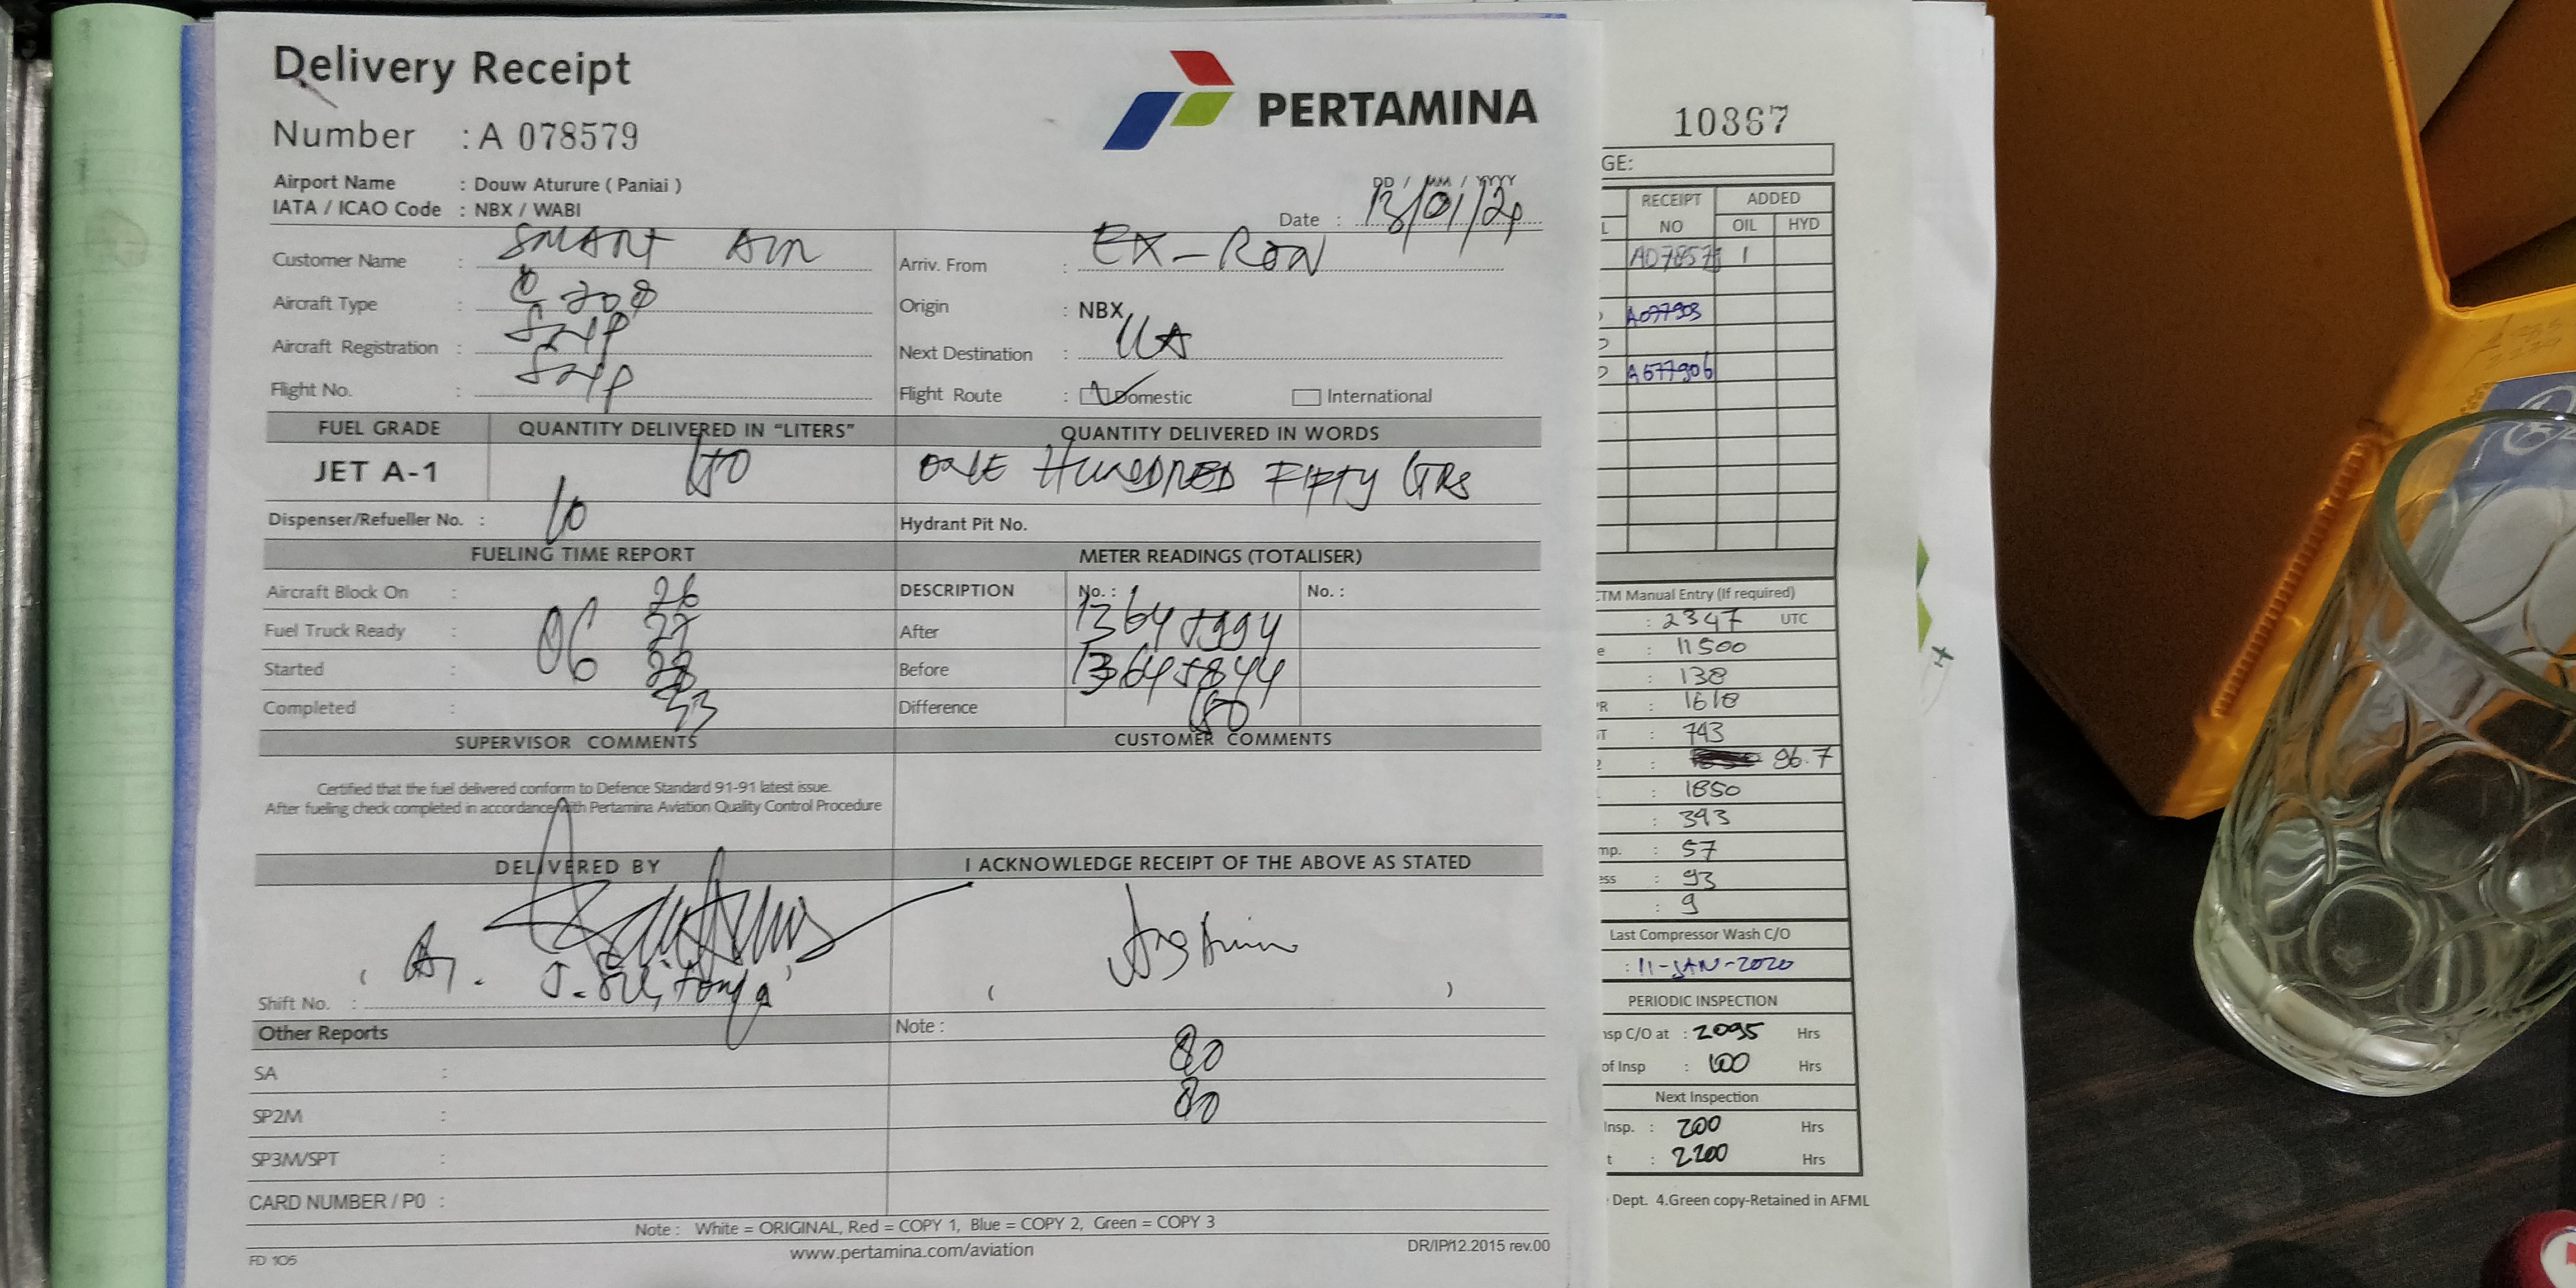 Delivery Receipt
PERTAMINA
Number : A 078579
Airport Name : Douw Aturure ( Paniai )
IATA / ICAO Code : NBX / WABI
DD / MM / YYYY
Date : 13/01/20
Customer Name : SMART AIR
Arriv. From : EX-RON
Aircraft Type : C 208
Origin : NBX
Aircraft Registration : SNP
Next Destination : UA
Flight No. : SNP
Flight Route : Domestic International
FUEL GRADE QUANTITY DELIVERED IN "LITERS" QUANTITY DELIVERED IN WORDS
JET A-1 150 ONE HUNDRED FIFTY LTRS
Dispenser/Refueller No. : 10 Hydrant Pit No.
FUELING TIME REPORT METER READINGS (TOTALISER)
Aircraft Block On : 26 DESCRIPTION No. : No. :
Fuel Truck Ready : 06 27 After 13645994
Started : 28 Before 13645844
Completed : 33 Difference 150
SUPERVISOR COMMENTS CUSTOMER COMMENTS
Certified that the fuel delivered conform to Defence Standard 91-91 latest issue.
After fueling check completed in accordance with Pertamina Aviation Quality Control Procedure
DELIVERED BY I ACKNOWLEDGE RECEIPT OF THE ABOVE AS STATED
Shift No. : ( )
Other Reports Note :
80
SA :
80
SP2M :
SP3M/SPT :
CARD NUMBER / P0 :
Note : White = ORIGINAL, Red = COPY 1, Blue = COPY 2, Green = COPY 3
www.pertamina.com/aviation
FD 105
DR/IP/12.2015 rev.00
10867
GE:
RECEIPT NO ADDED
L OIL HYD
A078571 1
A077903
A077906
CTM Manual Entry (If required)
: 2347 UTC
e : 11500
: 138
PR : 1618
T : 743
: 96.7
: 1850
: 393
mp. : 57
ess : 93
: 9
Last Compressor Wash C/O
: 11-JAN-2020
PERIODIC INSPECTION
nsp C/O at : 2095 Hrs
of Insp : 100 Hrs
Next Inspection
Insp. : 200 Hrs
t : 2200 Hrs
Dept. 4.Green copy-Retained in AFML